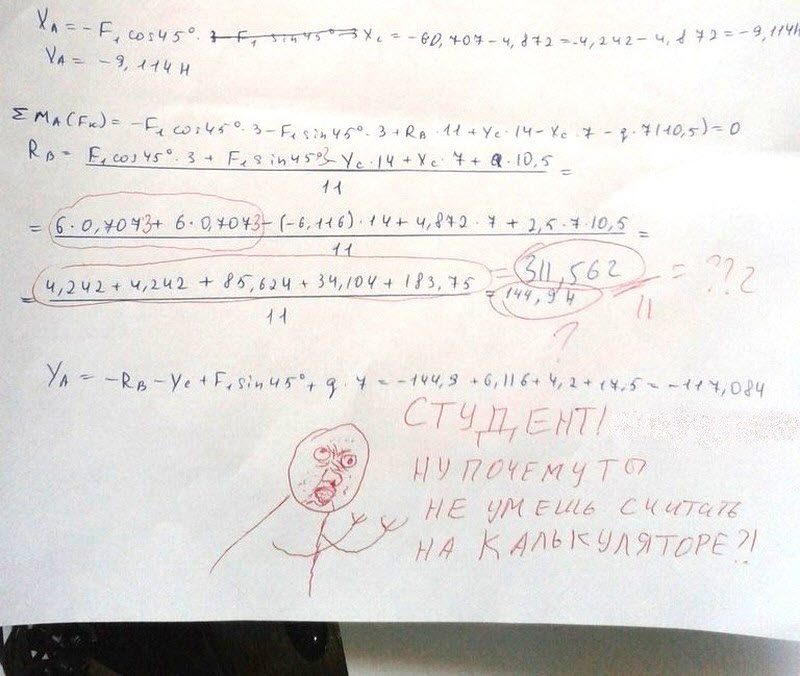 XA = -F1 cos45° · 3 - F1 sin45° · 3 Xc = -60,707 - 4,872 = -4,242 - 4,872 = -9,114H
XA = -9,114 H
ΣMA(Fк) = -F1 cos45° · 3 - F1 sin45° · 3 + RB · 11 + Yc · 14 - Xc · 7 - q · 7(10,5) = 0
RB = F1 cos45° · 3 + F1 sin45° 3 - Yc · 14 + Xc · 7 + Q · 10,5 =
11
= 6 · 0,7073 + 6 · 0,7073 - (-6,116) · 14 + 4,872 · 7 + 2,5 · 7 · 10,5 =
11
= 4,242 + 4,242 + 85,624 + 34,104 + 183,75 = 311,562 = ???
11 = 144,9 H 11
?
YA = -RB - Yc + F1 sin45° + q · 7 = -144,9 + 6,116 + 4,2 + 17,5 = -117,084
СТУДЕНТ!
НУ ПОЧЕМУ ТЫ
НЕ УМЕШЬ СЧИТАТЬ
НА КАЛЬКУЛЯТОРЕ?!